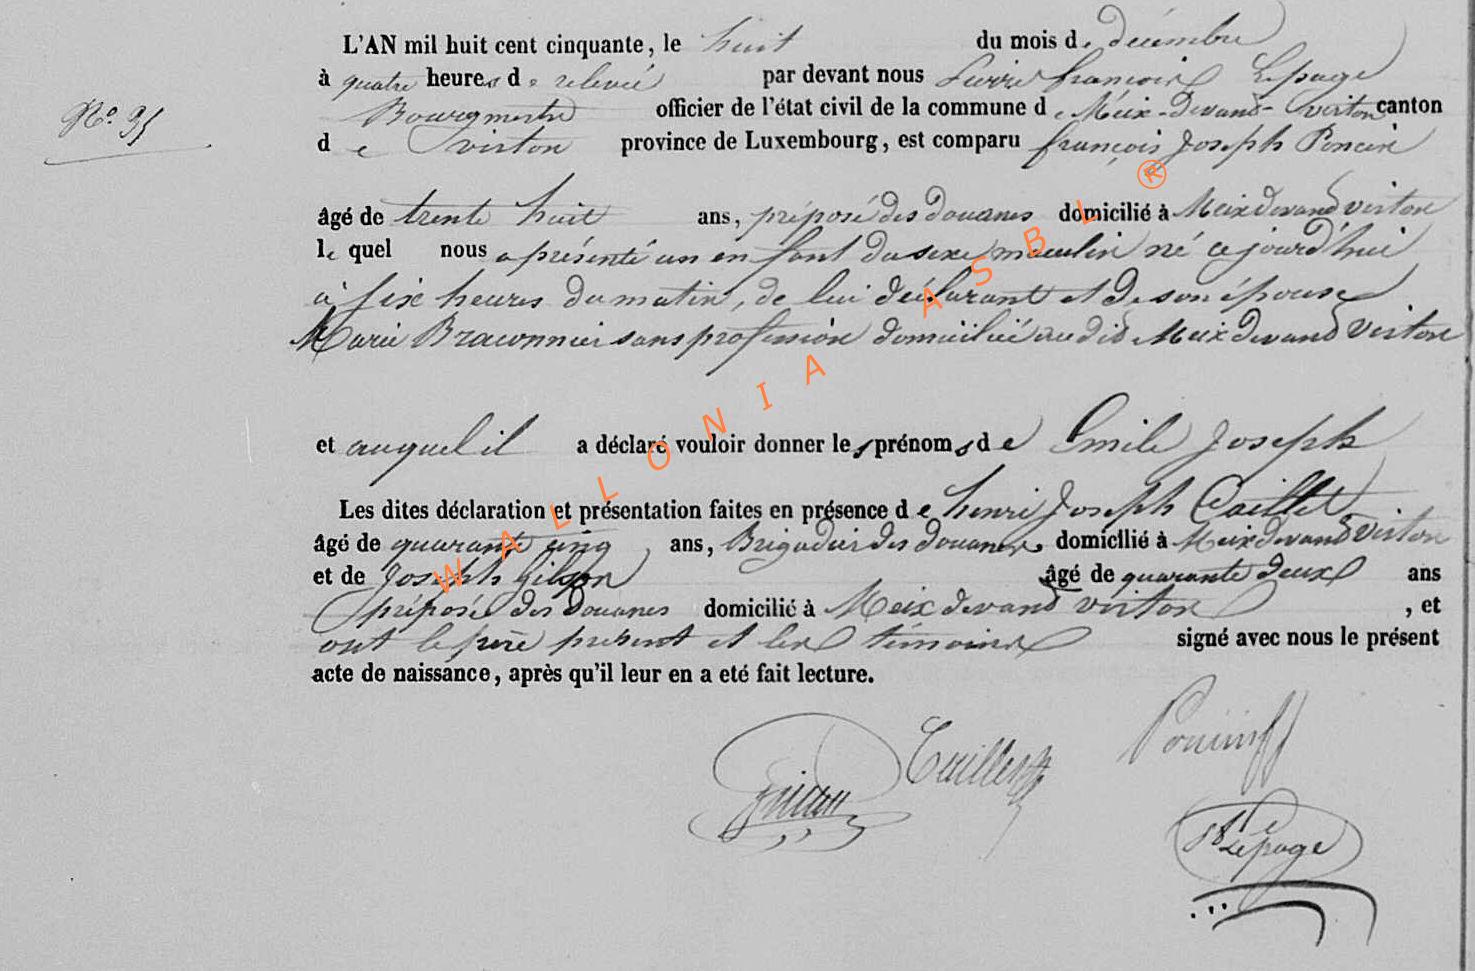 L'AN mil huit cent cinquante, le huit du mois de décembre
à quatre heures de relevée par devant nous Pierre françois Lepage
N° 35
Bourgmestre officier de l'état civil de la commune de Meix-devand-virton canton
de virton province de Luxembourg, est comparu françois Joseph Poncin
âgé de trente huit ans, préposé des douanes domicilié à Meix devand virton
le quel nous a présenté un enfant du sexe masculin né ce jourd'hui
à six heures du matin, de lui déclarant et de son épouse
Marie Braconnier sans profession domiciliée au dit Meix devand Virton
et auquel il a déclaré vouloir donner les prénoms de Emile Joseph
Les dites déclaration et présentation faites en présence de henri Joseph Caillet
âgé de quarante cinq ans, Brigadier des douanes, domicilié à Meix devand virton
et de Joseph Gilson âgé de quarante deux ans
préposé des douanes domicilié à Meix devand virton, et
ont le père présent et les témoins signé avec nous le présent
acte de naissance, après qu'il leur en a eté fait lecture.
Caillet
Poncin
Lepage
WALLONIA ASBL ®